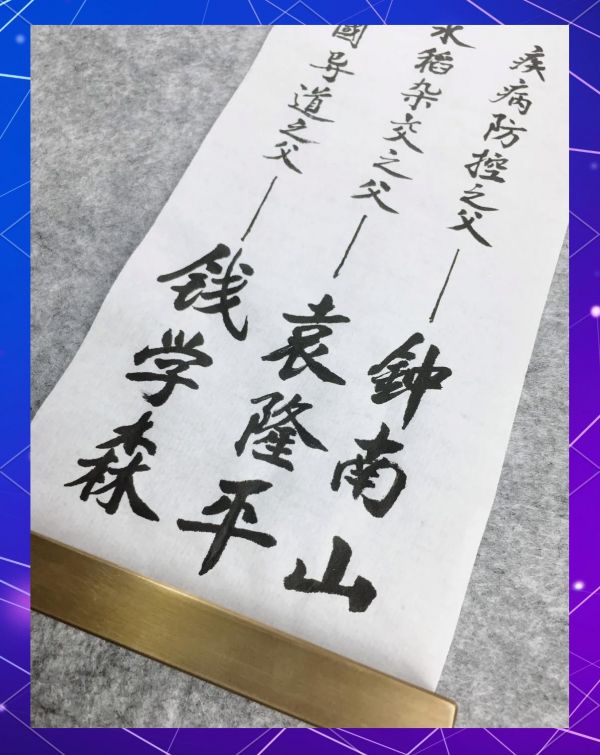 疾病防控之父—鈡南山
水稻杂交之父—袁隆平
國导道之父—钱学森